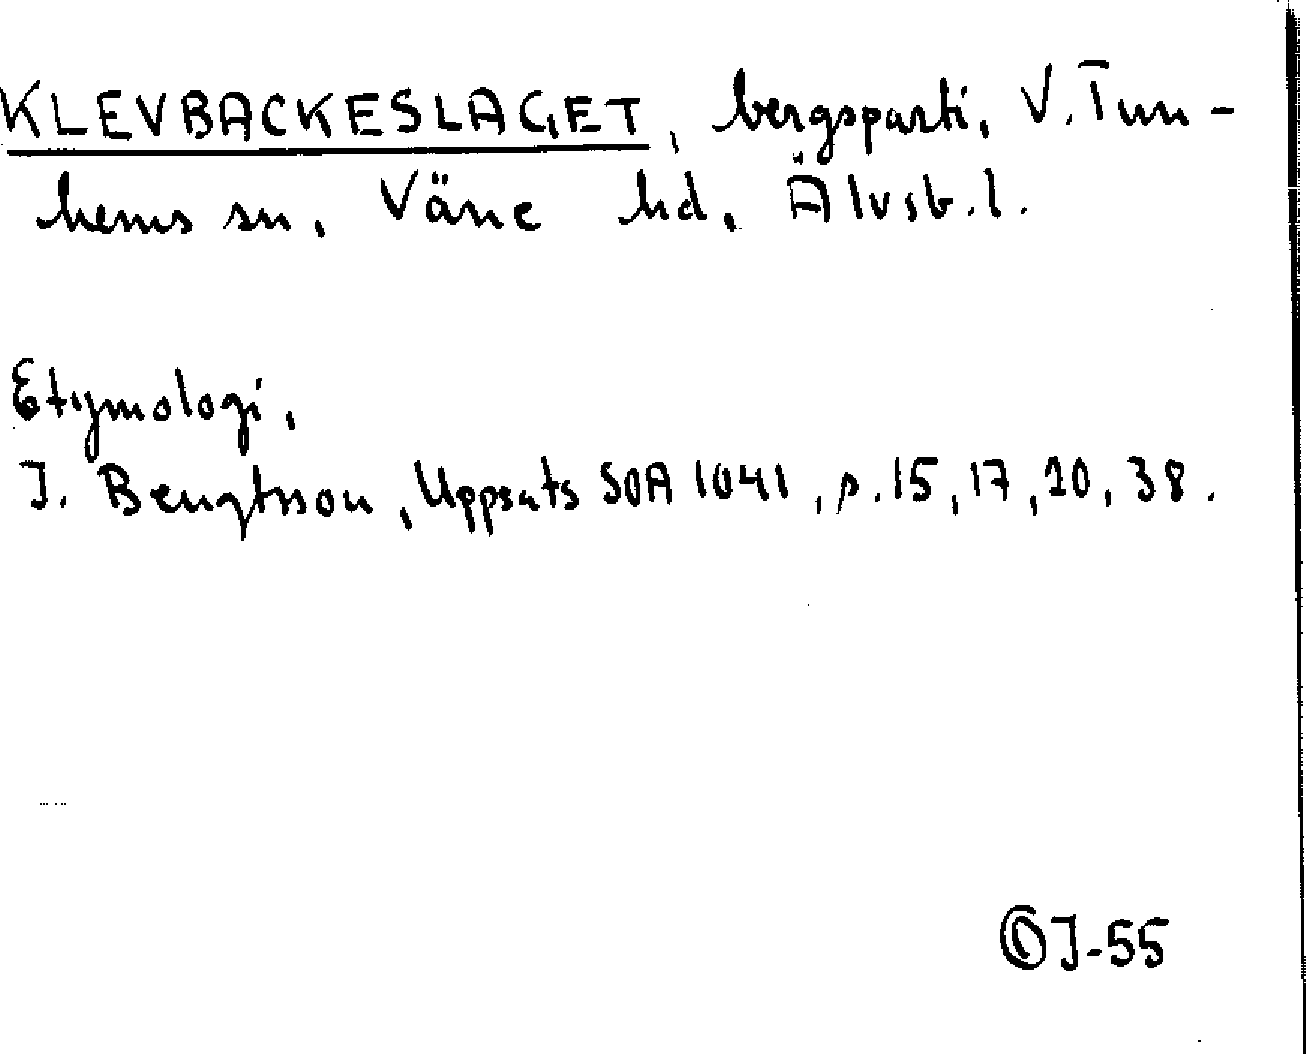 KLEVBACKESLAGET, bergsparti, V. Tun-
hems sn, Väne hd, Älvsb. l.
Etymologi,
I. Bengtsson, Uppsats SOA 1041, s. 15, 17, 20, 38.
OJ-55